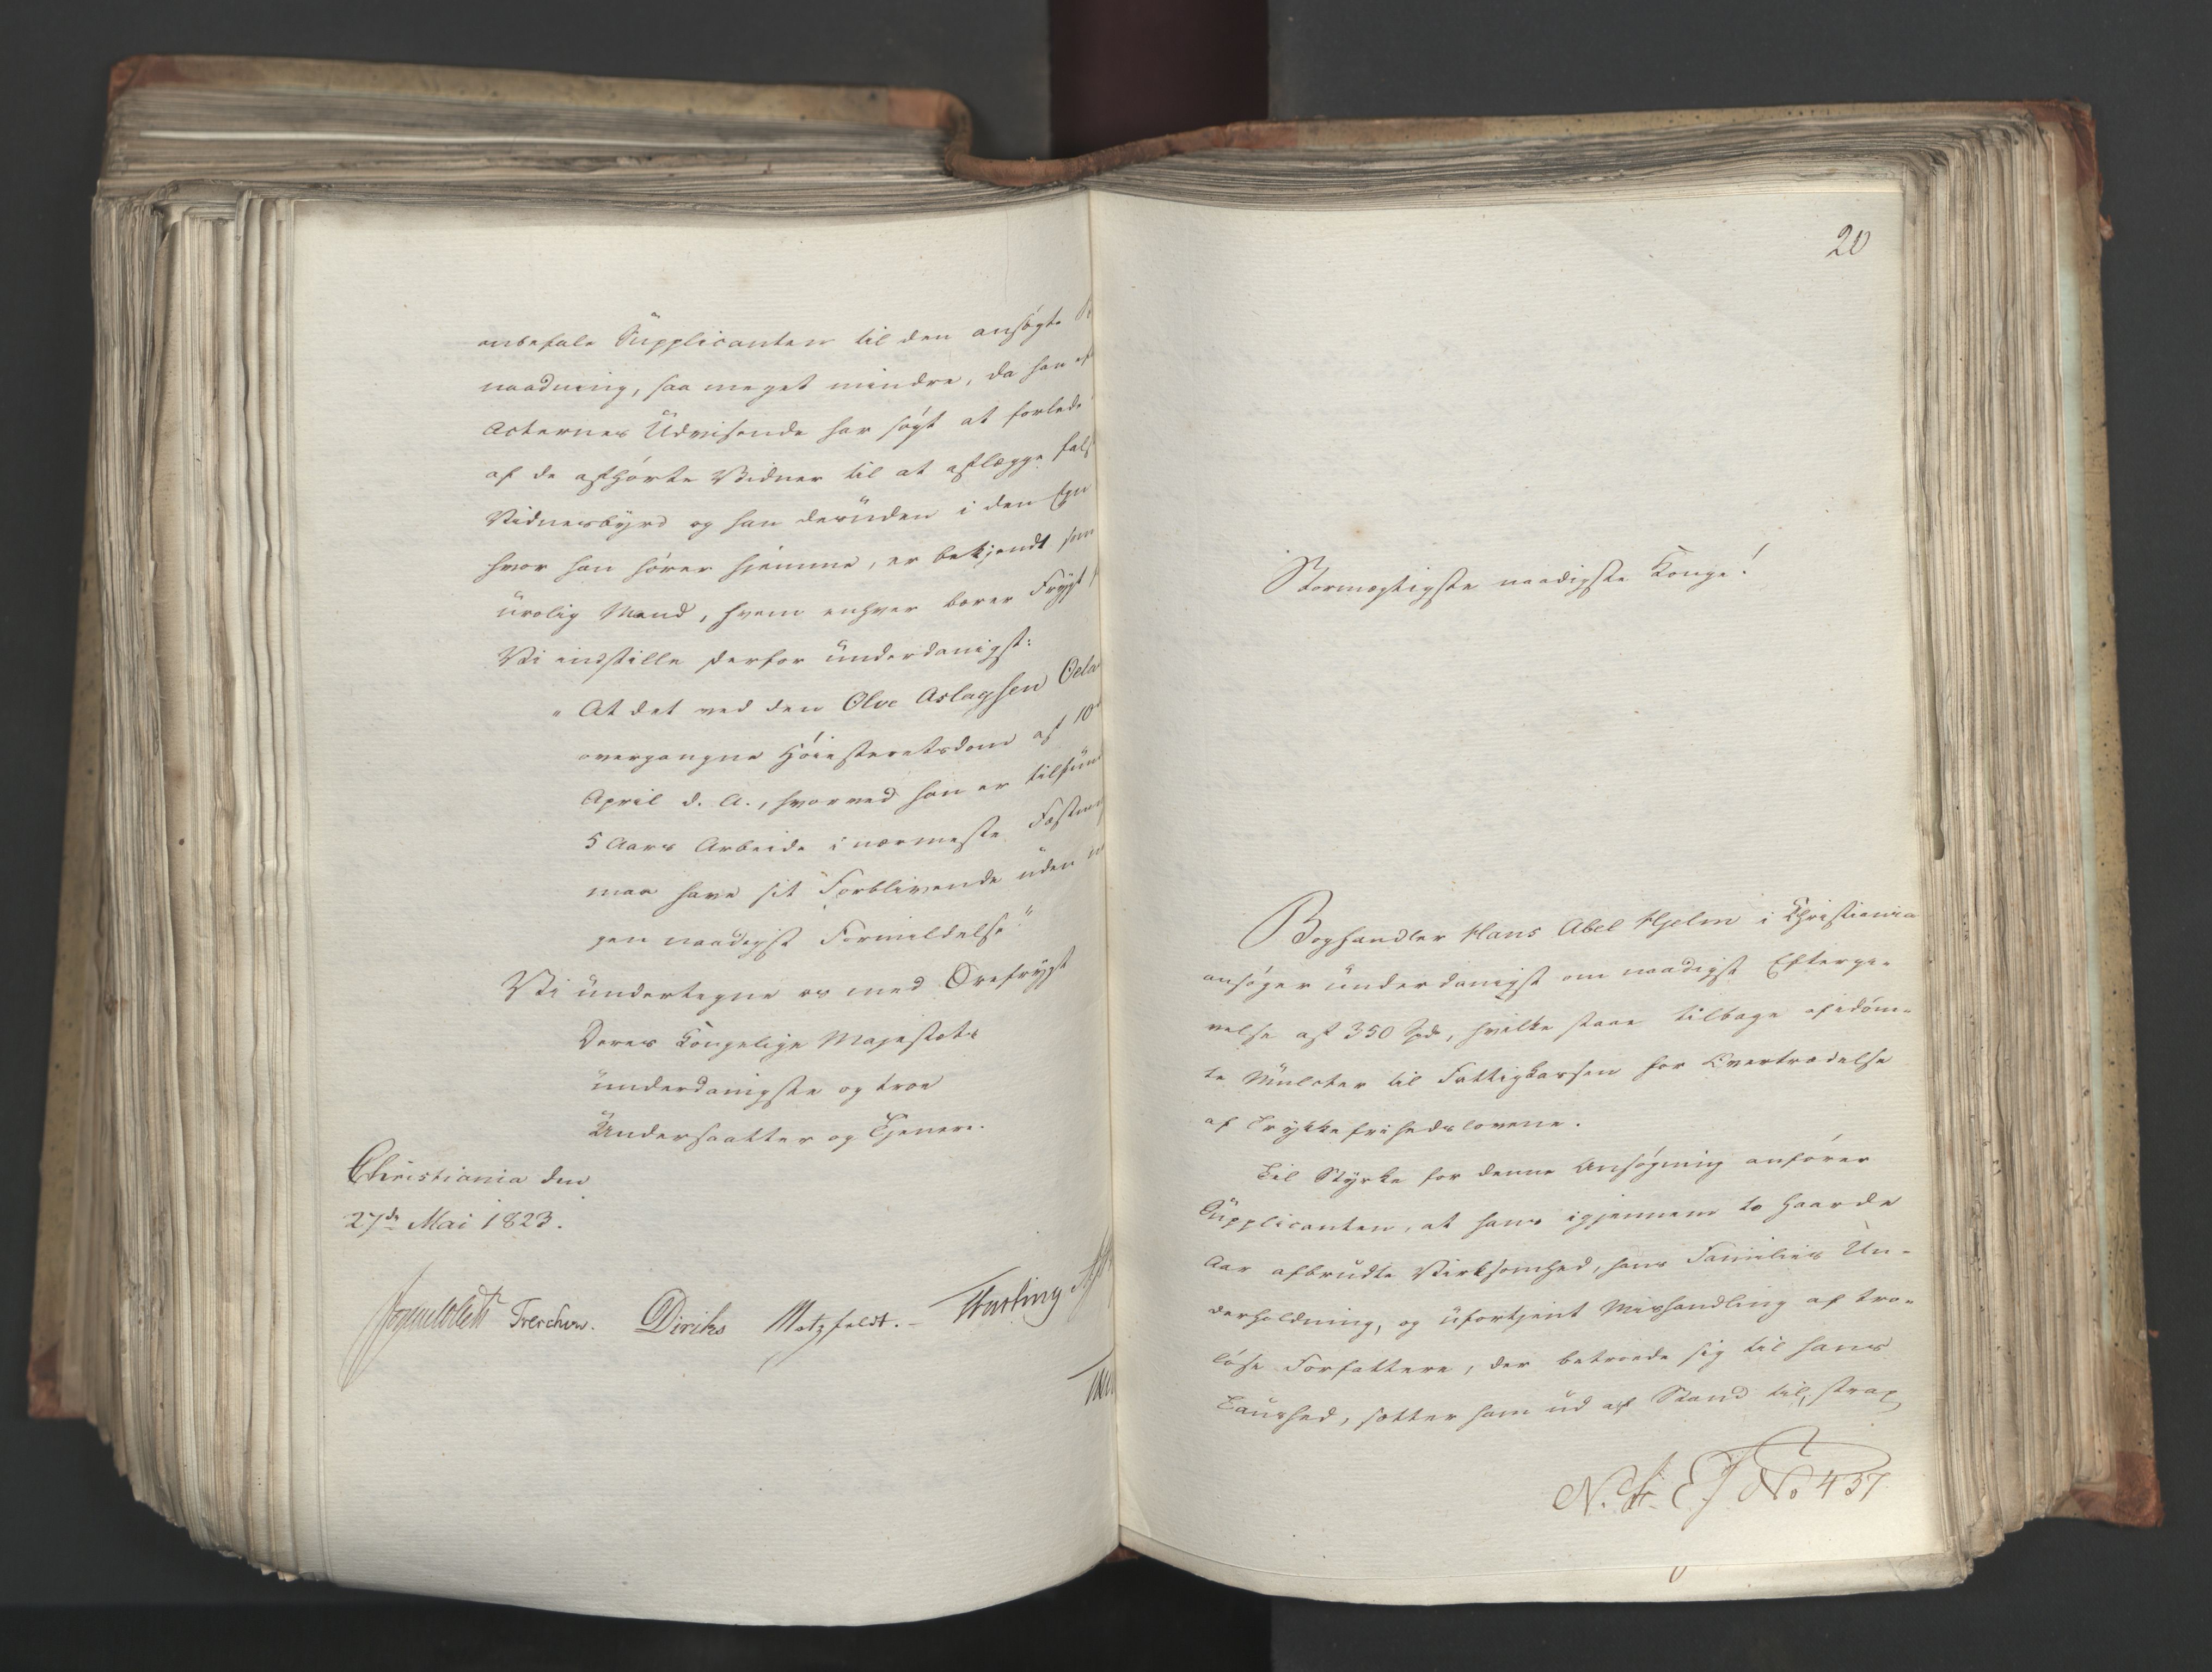 anbefale Supplicanten til den ansøgte
naadning, saa meget mindre, da han
Acternes Udvisende har søgt at forlede
af de afhørte Vidner til at aflægge fals
Vidnesbyrd og han desuden i den Egn
hvor han hører hjemme, er bekjendt som
urolig Mand, hvem enhver bærer Frygt
Vi indstille derfor underdanigst:
"At det ved den Olve Aslagsen
overgangne Høiesteretsdom af 10
April d. A., hvorved han er tilfun
5 Aars Arbeide i nærmeste Fæstn
maa have sit Forblivende uden
gen naadigst Formildelse"
Vi undertegne os med Ærefrygt
Deres Kongelige Majestæts
underdanigste og troe
Undersaatter og Tjenere.
Christiania den
27de Mai 1823.
Sommerhielm Treschow. Diriks Motzfeldt. Fasting
20
Stormægtigste naadigste Konge!
Boghandler Hans Abel Hjelm i Christiania
ansøger underdanigst om naadigst Eftergi-
velse af 350 Spd, hvilke staae tilbage af idøm-
te Mulcter til Fattigkassen for Overtrædelse
af Trykkefrihedslovene.
Til Styrke for denne Ansøgning anfører
Supplicanten, at hans igjennem to haarde
Aar afbrudte Virksomhed, hans Families Un-
derholdning, og ufortjent Mishandling af tro-
løse Forfattere, der betroede sig til hans
Taushed, sætter ham ud af Stand til, strax
No 437